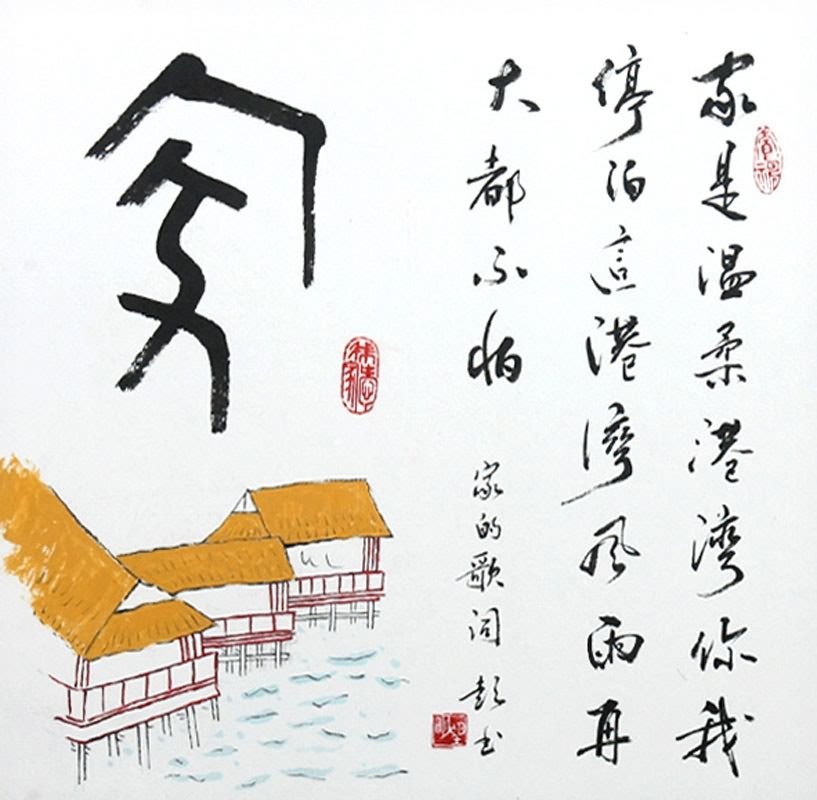 家是温柔港灣你我
停泊這港灣风雨再
大都不怕
家的歌词 彭书
家